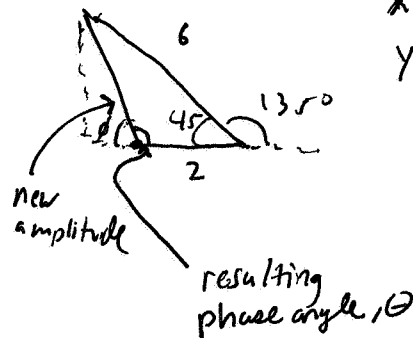 x
6
y
135°
45
ϕ
2
new
amplitude
resulting
phase angle, θ